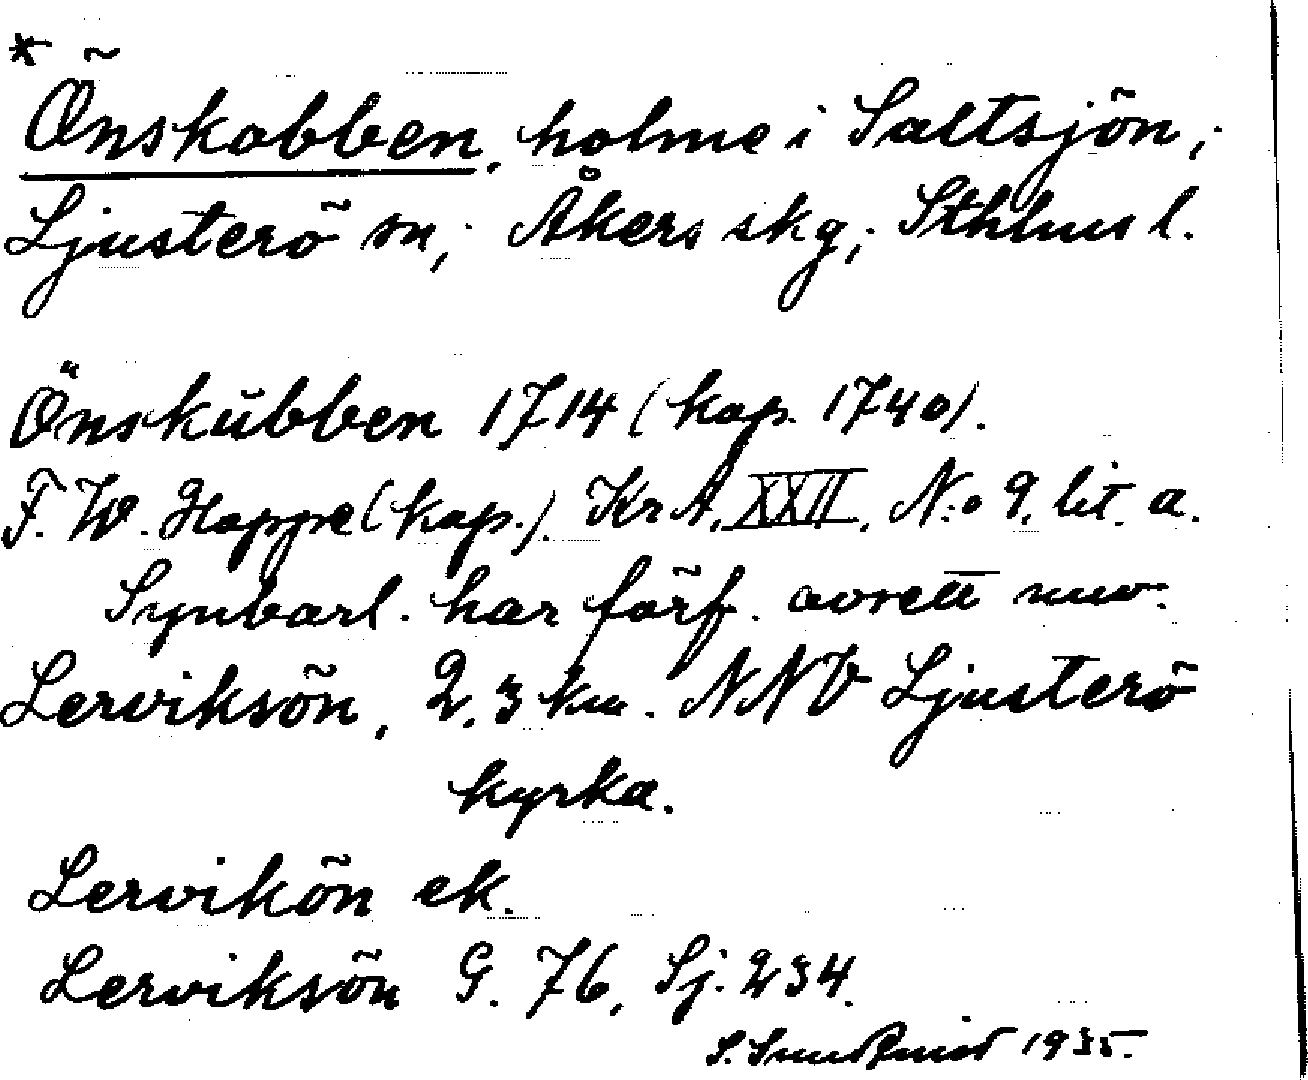 * Önskobben, holme i Saltsjön,
Ljusterö sn; Åkers skg; Sthlms l.
Önskŭbben 1714 (kop. 1740).
F. W. Hoppe (kop.). KrA, XXII, N:o 9, lit. a.
Synbarl. har förf. avsett nuv.
Lerviksön, 2,3 km. NNV Ljusterö
kyrka.
Lervikön ek.
Lerviksön G. 76, Sj. 234.
S. Sundqvist 1935.